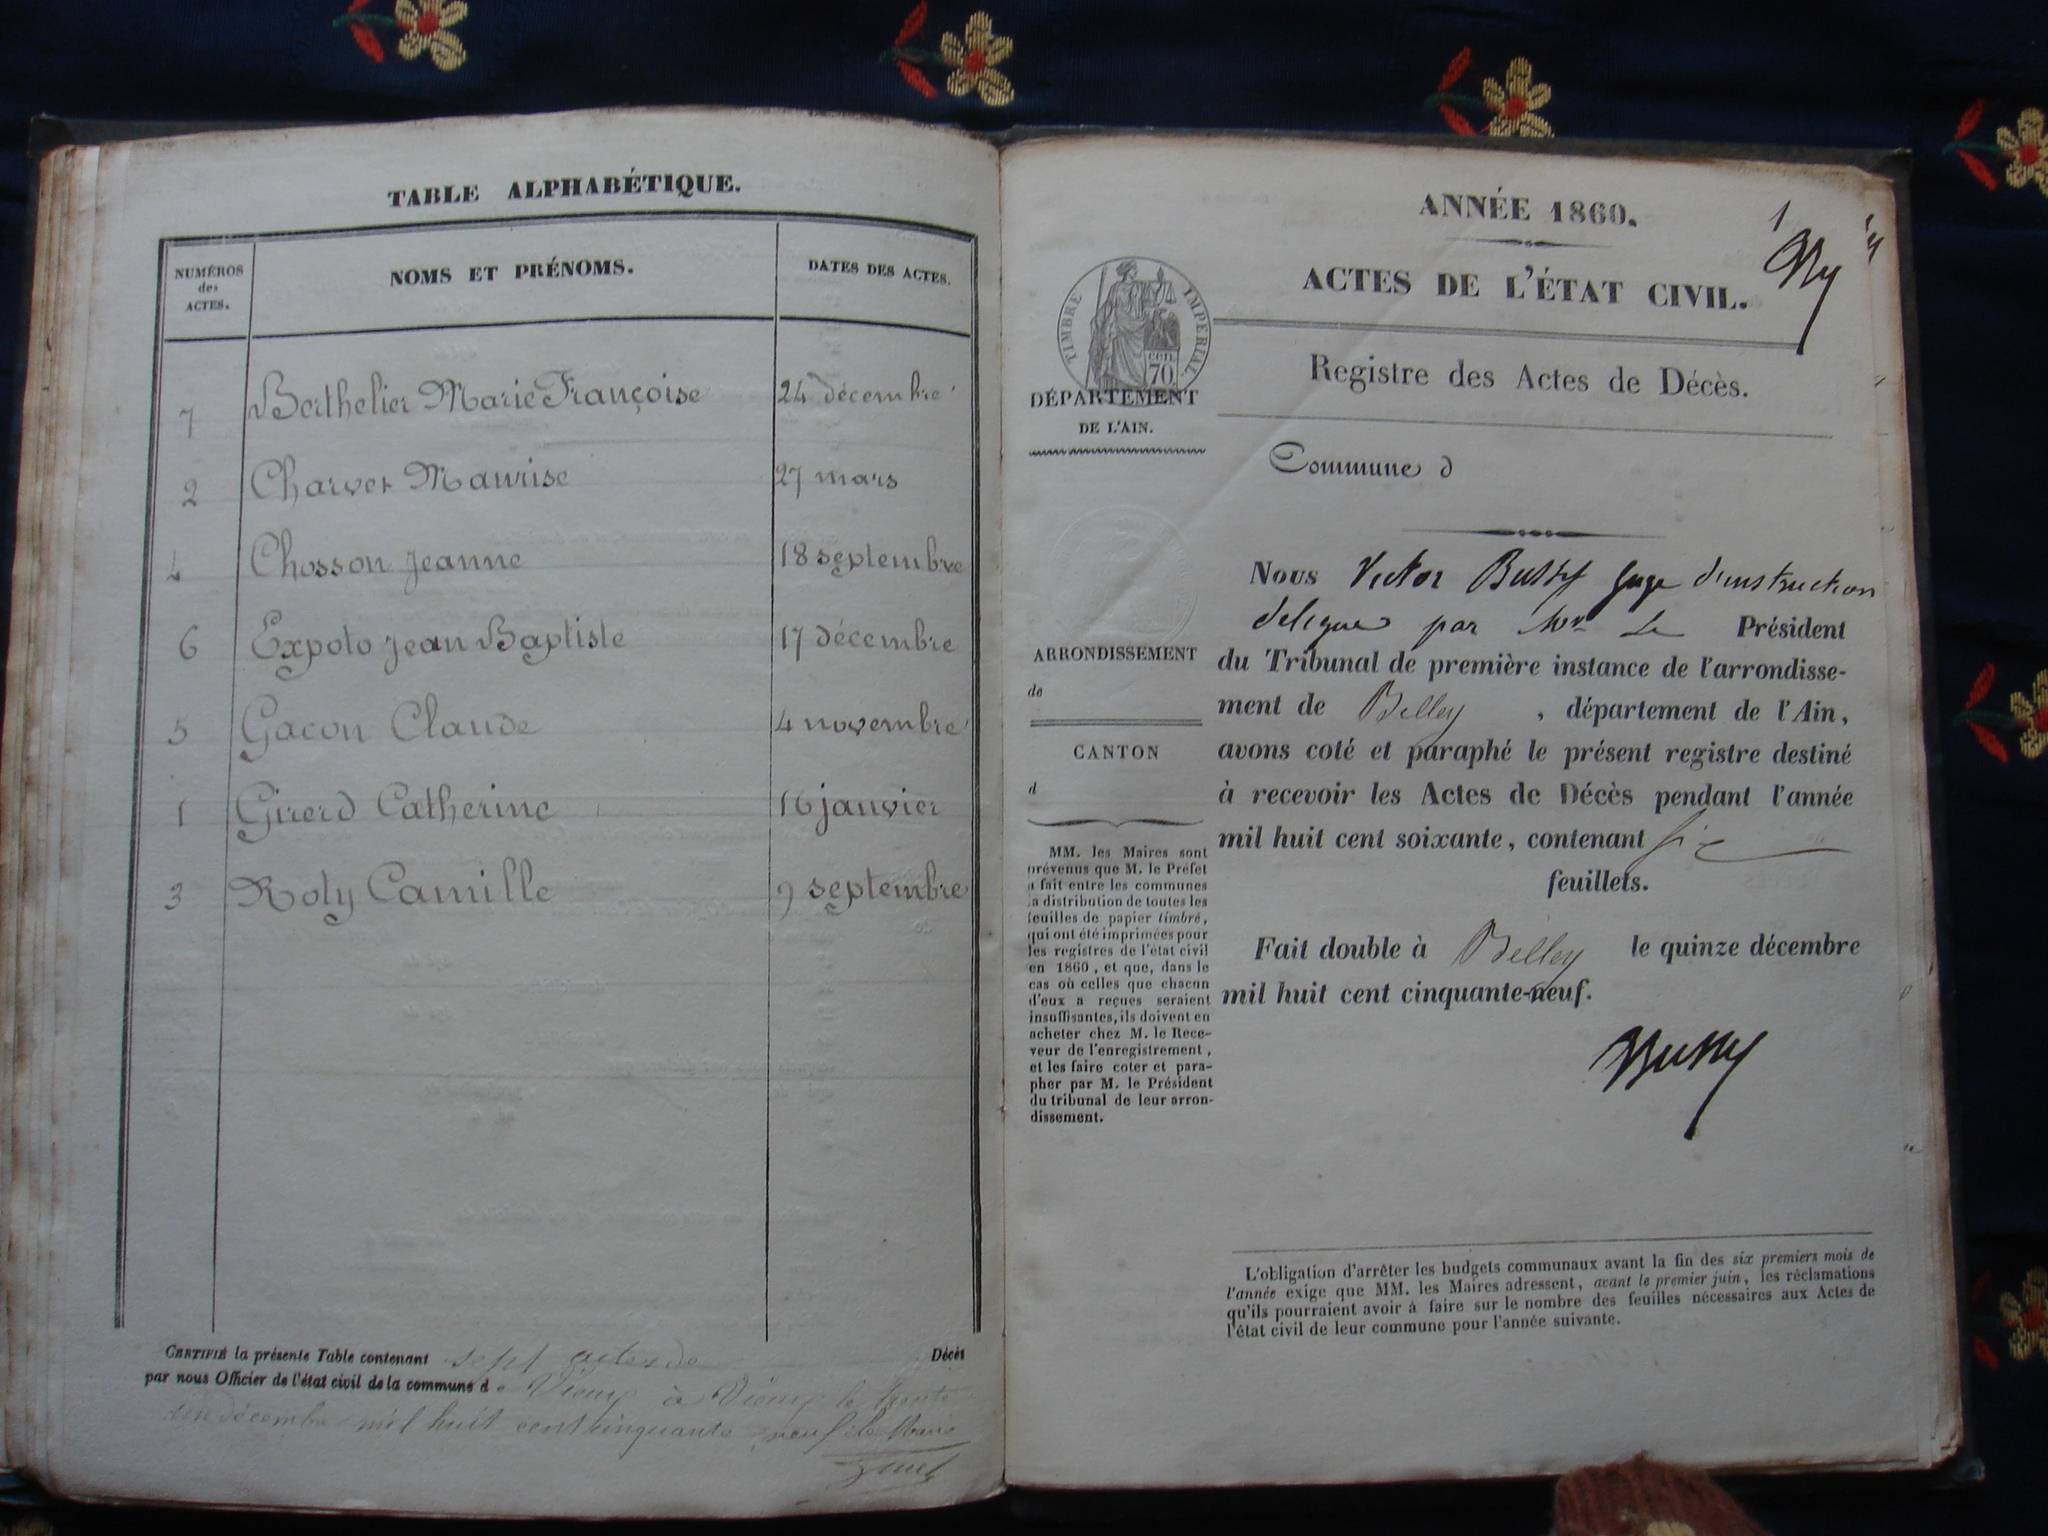 TABLE ALPHABÉTIQUE.
NUMÉROS
des
ACTES.
NOMS ET PRÉNOMS.
DATES DES ACTES.
7 Berthelier Marie Françoise 24 décembre
2 Charvet Maurise 27 mars
4 Chosson Jeanne 18 septembre
6 Expolo Jean Baptiste 17 décembre
5 Gacon Claude 4 novembre
1 Girerd Catherine 16 janvier
3 Roly Camille 9 septembre
CERTIFIÉ la présente Table contenant sept actes de Décès
par nous Officier de l'état civil de la commune de Vieu à Vieu le trente
un décembre mil huit cent cinquante neuf le Maire
ANNÉE 1860.
1
ACTES DE L'ÉTAT CIVIL.
TIMBRE IMPERIAL
CEN.
70
Registre des Actes de Décès.
DÉPARTEMENT
DE L'AIN.
Commune d
Nous Victor Bussy Juge d'instruction
délégué par Mr Le Président
du Tribunal de première instance de l'arrondisse-
ment de Belley, département de l'Ain,
avons coté et paraphé le présent registre destiné
à recevoir les Actes de Décès pendant l'année
mil huit cent soixante, contenant six
feuillets.
Fait double à Belley le quinze décembre
mil huit cent cinquante-neuf.
Bussy
ARRONDISSEMENT
de
CANTON
d
MM. les Maires sont
prévenus que M. le Préfet
a fait entre les communes
la distribution de toutes les
feuilles de papier timbré,
qui ont été imprimées pour
les registres de l'état civil
en 1860, et que, dans le
cas où celles que chacun
d'eux a reçues seraient
insuffisantes, ils doivent en
acheter chez M. le Rece-
veur de l'enregistrement,
et les faire coter et para-
pher par M. le Président
du tribunal de leur arron-
dissement.
L'obligation d'arrêter les budgets communaux avant la fin des six premiers mois de
l'année exige que MM. les Maires adressent, avant le premier juin, les réclamations
qu'ils pourraient avoir à faire sur le nombre des feuilles nécessaires aux Actes de
l'état civil de leur commune pour l'année suivante.